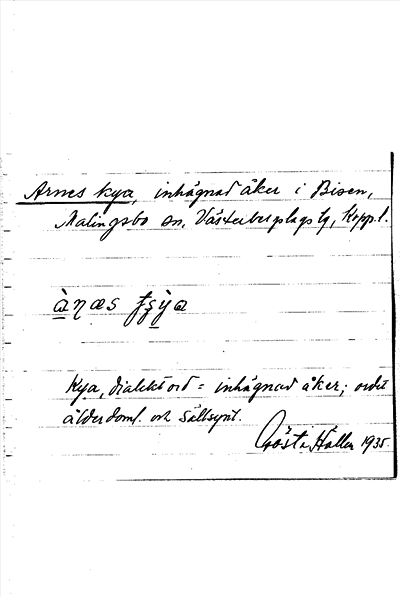 Arnes kya, inhägnad åker i Bisen,
Malingsbo sn, Västerbergslags tg, Kopp. l.
Kya, dialektord = inhägnad åker; ordet
ålderdoml. och sällsynt.
Gösta Häller 1935.